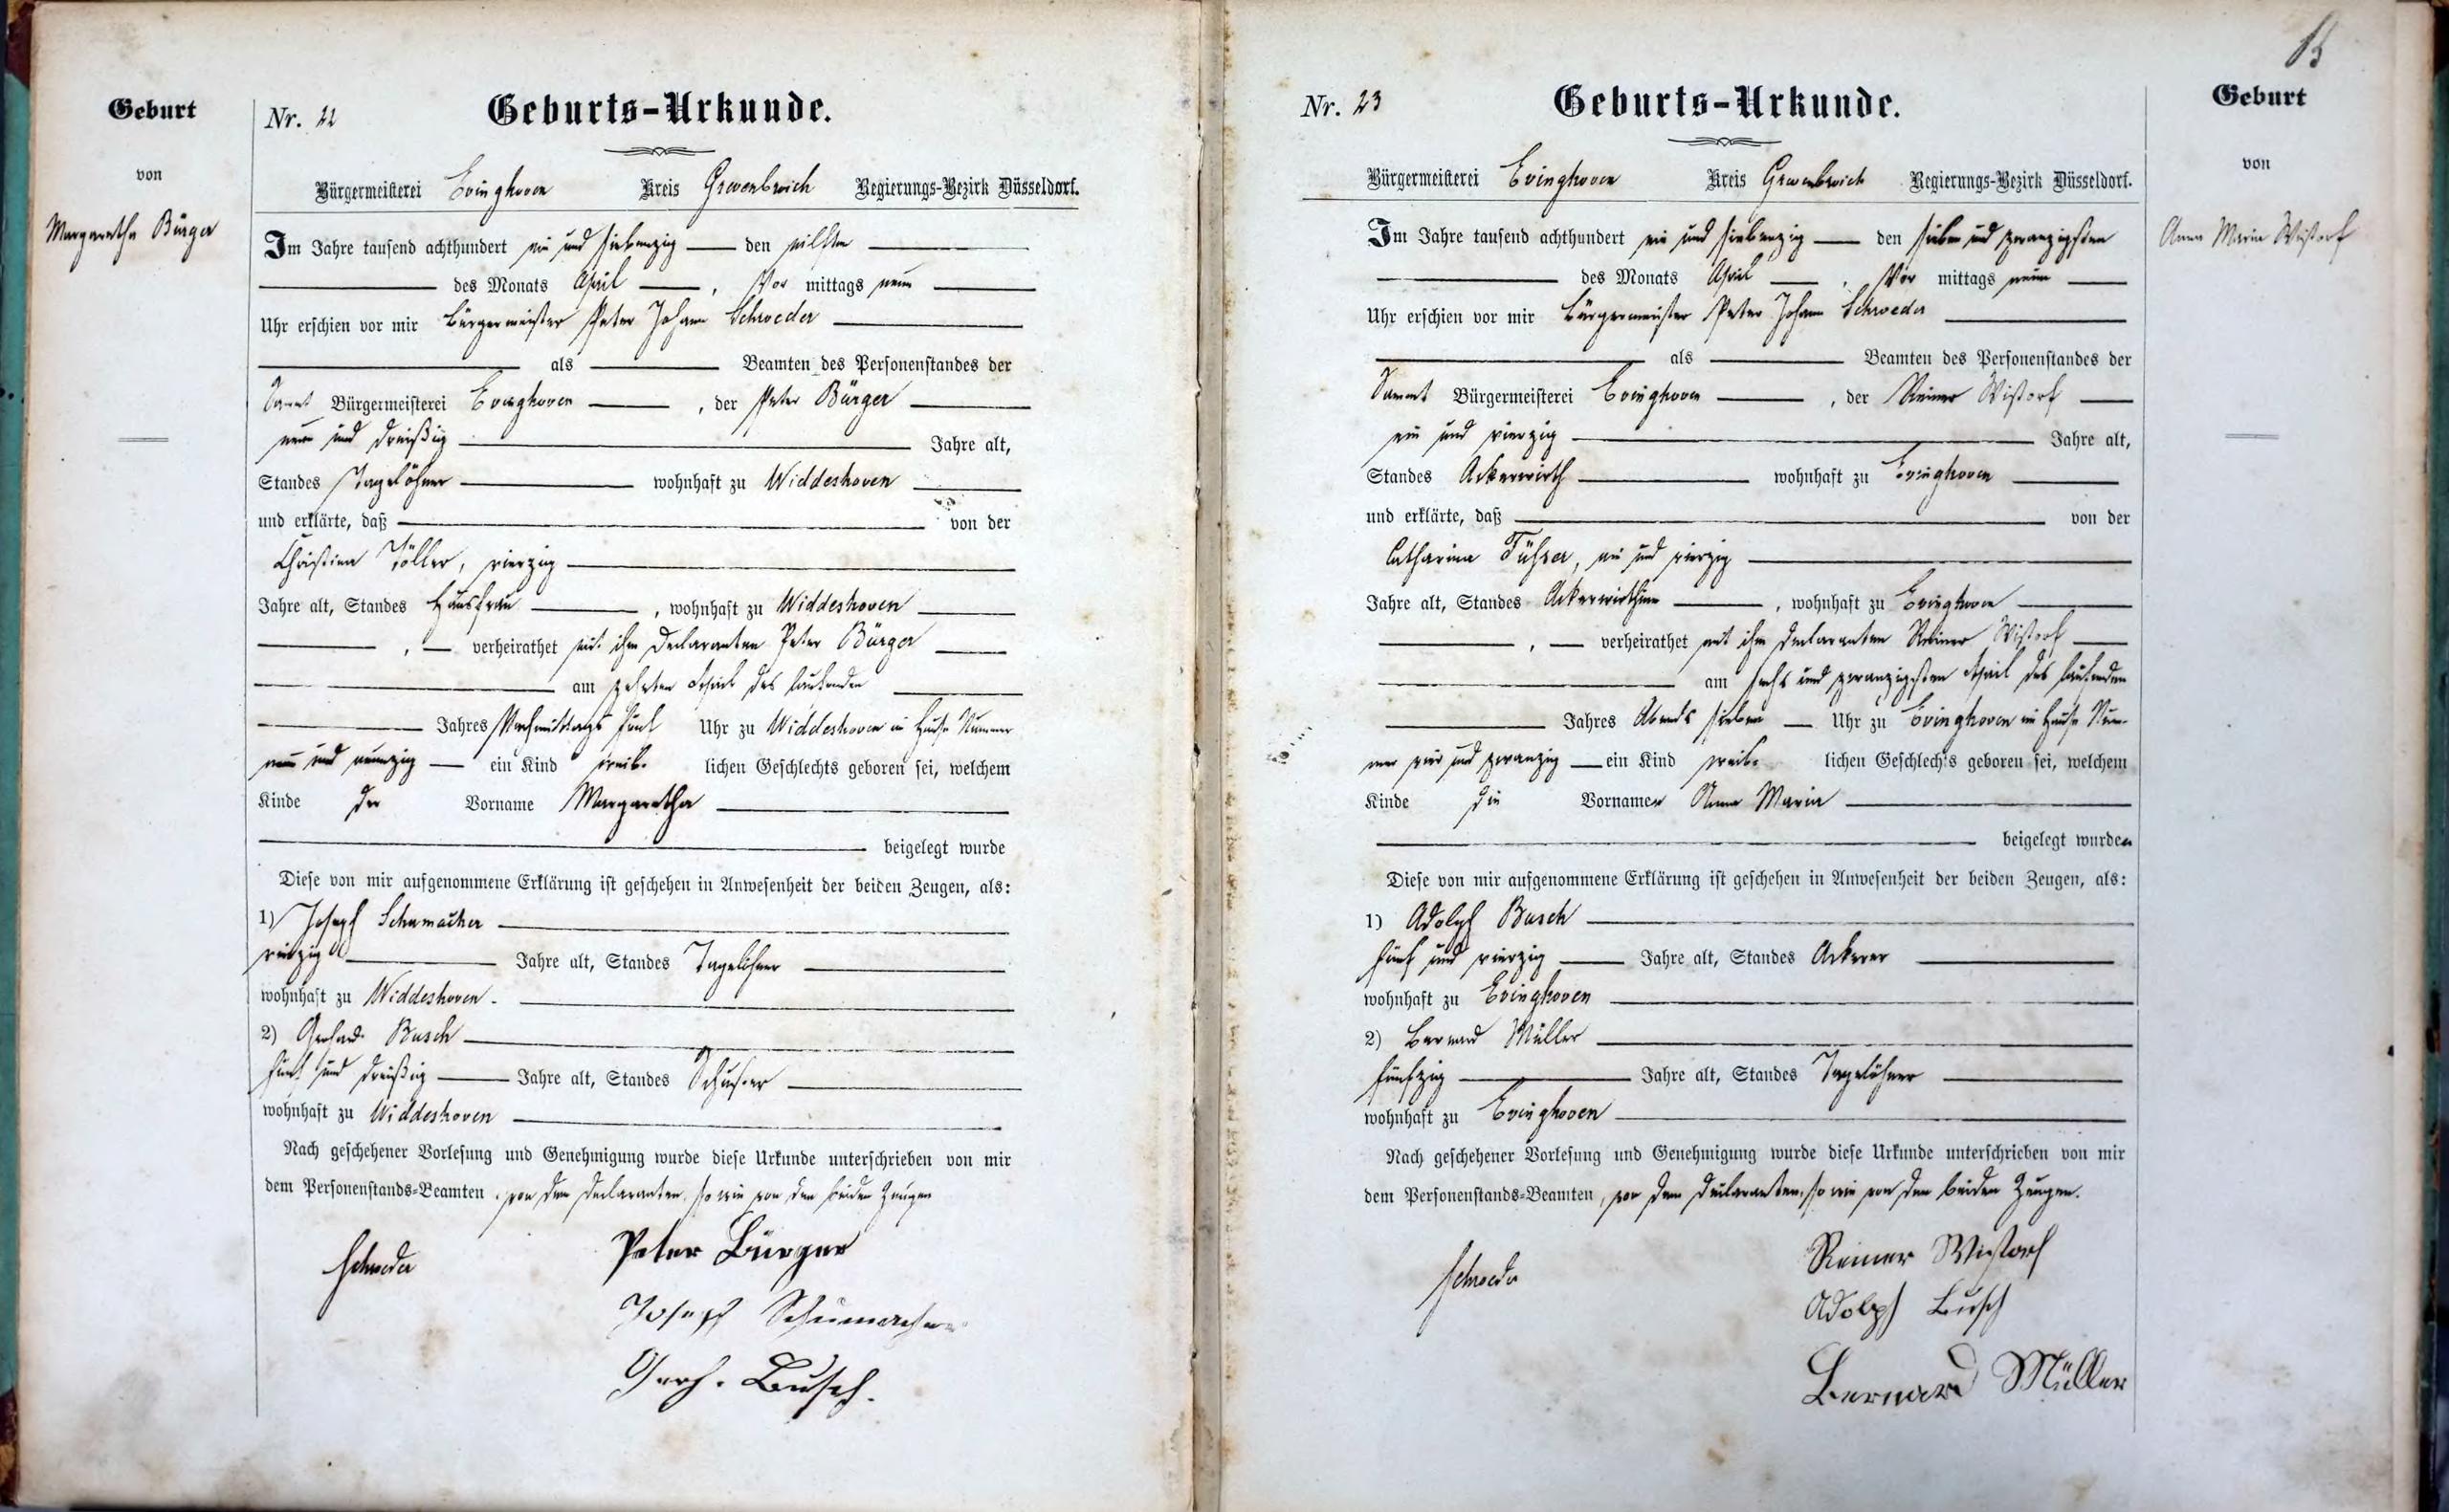 Geburt
von
Margaretha Bürger
Nr. 22
Geburts-Urkunde.
Bürgermeisterei Evinghoven Kreis Grevenbroich Regierungs-Bezirk Düsseldorf.
Im Jahre tausend achthundert ein und siebenzig den eilften
des Monats April, Vor mittags neun
Uhr erschien vor mir Bürgermeister Peter Johann Schroeder
als Beamten des Personenstandes der
Samt Bürgermeisterei Evinghoven, der Peter Bürger
neun und dreißig Jahre alt,
Standes Tagelöhner wohnhaft zu Widdeshoven
und erklärte, daß von der
Christina Töller, vierzig
Jahre alt, Standes Hausfrau, wohnhaft zu Widdeshoven
, verheirathet mit ihm Declaranten Peter Bürger
am zehnten April des laufenden
Jahres Nachmittags fünf Uhr zu Widdeshoven im Hause Nummer
neun und neunzig ein Kind weib- lichen Geschlechts geboren sei, welchem
Kinde der Vorname Margaretha
beigelegt wurde
Diese von mir aufgenommene Erklärung ist geschehen in Anwesenheit der beiden Zeugen, als:
1) Joseph Schumacher
vierzig Jahre alt, Standes Tagelöhner
wohnhaft zu Widdeshoven.
2) Gerhard Busch
fünf und dreißig Jahre alt, Standes Schuster
wohnhaft zu Widdeshoven
Nach geschehener Vorlesung und Genehmigung wurde diese Urkunde unterschrieben von mir
dem Personenstands-Beamten, von dem Declaranten, so wie von den beiden Zeugen
Schroeder
Peter Bürger
Joseph Schumacher
Gerh. Busch.
15
Nr. 23
Geburts-Urkunde.
Bürgermeisterei Evinghoven Kreis Grevenbroich Regierungs-Bezirk Düsseldorf.
Im Jahre tausend achthundert ein und siebenzig den sieben und zwanzigsten
des Monats April, Vor mittags neun
Uhr erschien vor mir Bürgermeister Peter Johann Schroeder
als Beamten des Personenstandes der
Sammt Bürgermeisterei Evinghoven, der Reiner Wistorf
ein und vierzig Jahre alt,
Standes Ackerwirth wohnhaft zu Evinghoven
und erklärte, daß von der
Catharina Führer, ein und vierzig
Jahre alt, Standes Ackerwirthinn, wohnhaft zu Evinghoven
, verheirathet mit ihm Declaranten Reiner Wistorf
am sechs und zwanzigsten April des laufenden
Jahres Abends sieben Uhr zu Evinghoven im Hause Num-
mer vier und zwanzig ein Kind weib- lichen Geschlechts geboren sei, welchem
Kinde die Vornamen Anna Maria
beigelegt wurden
Diese von mir aufgenommene Erklärung ist geschehen in Anwesenheit der beiden Zeugen, als:
1) Adolph Busch
fünf und vierzig Jahre alt, Standes Ackerer
wohnhaft zu Evinghoven
2) Bernard Müller
fünfzig Jahre alt, Standes Tagelöhner
wohnhaft zu Evinghoven
Nach geschehener Vorlesung und Genehmigung wurde diese Urkunde unterschrieben von mir
dem Personenstands-Beamten, von dem Declaranten, so wie von den beiden Zeugen.
Schroeder
Reiner Wistorf
Adolph Busch
Bernard Müller
Geburt
von
Anna Maria Wistorf